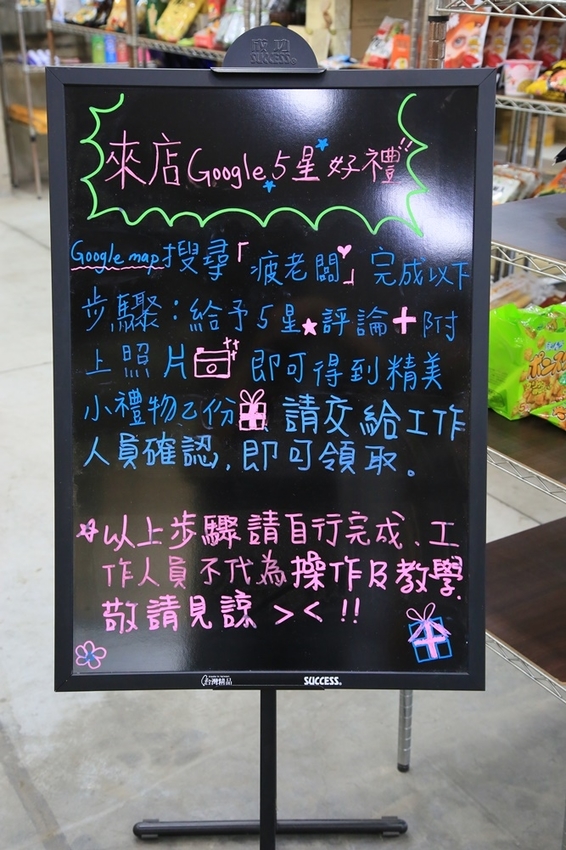 成功
SUCCESS®
來店Google 5星好禮
Google map 搜尋「疲老闆」完成以下
步驟：給予5星★評論+附
上照片 即可得到精美
小禮物乙份 請交給工作
人員確認，即可領取。
以上步驟請自行完成、工
作人員不代為操作及教學
敬請見諒 ><!!
台灣精品 SUCCESS®